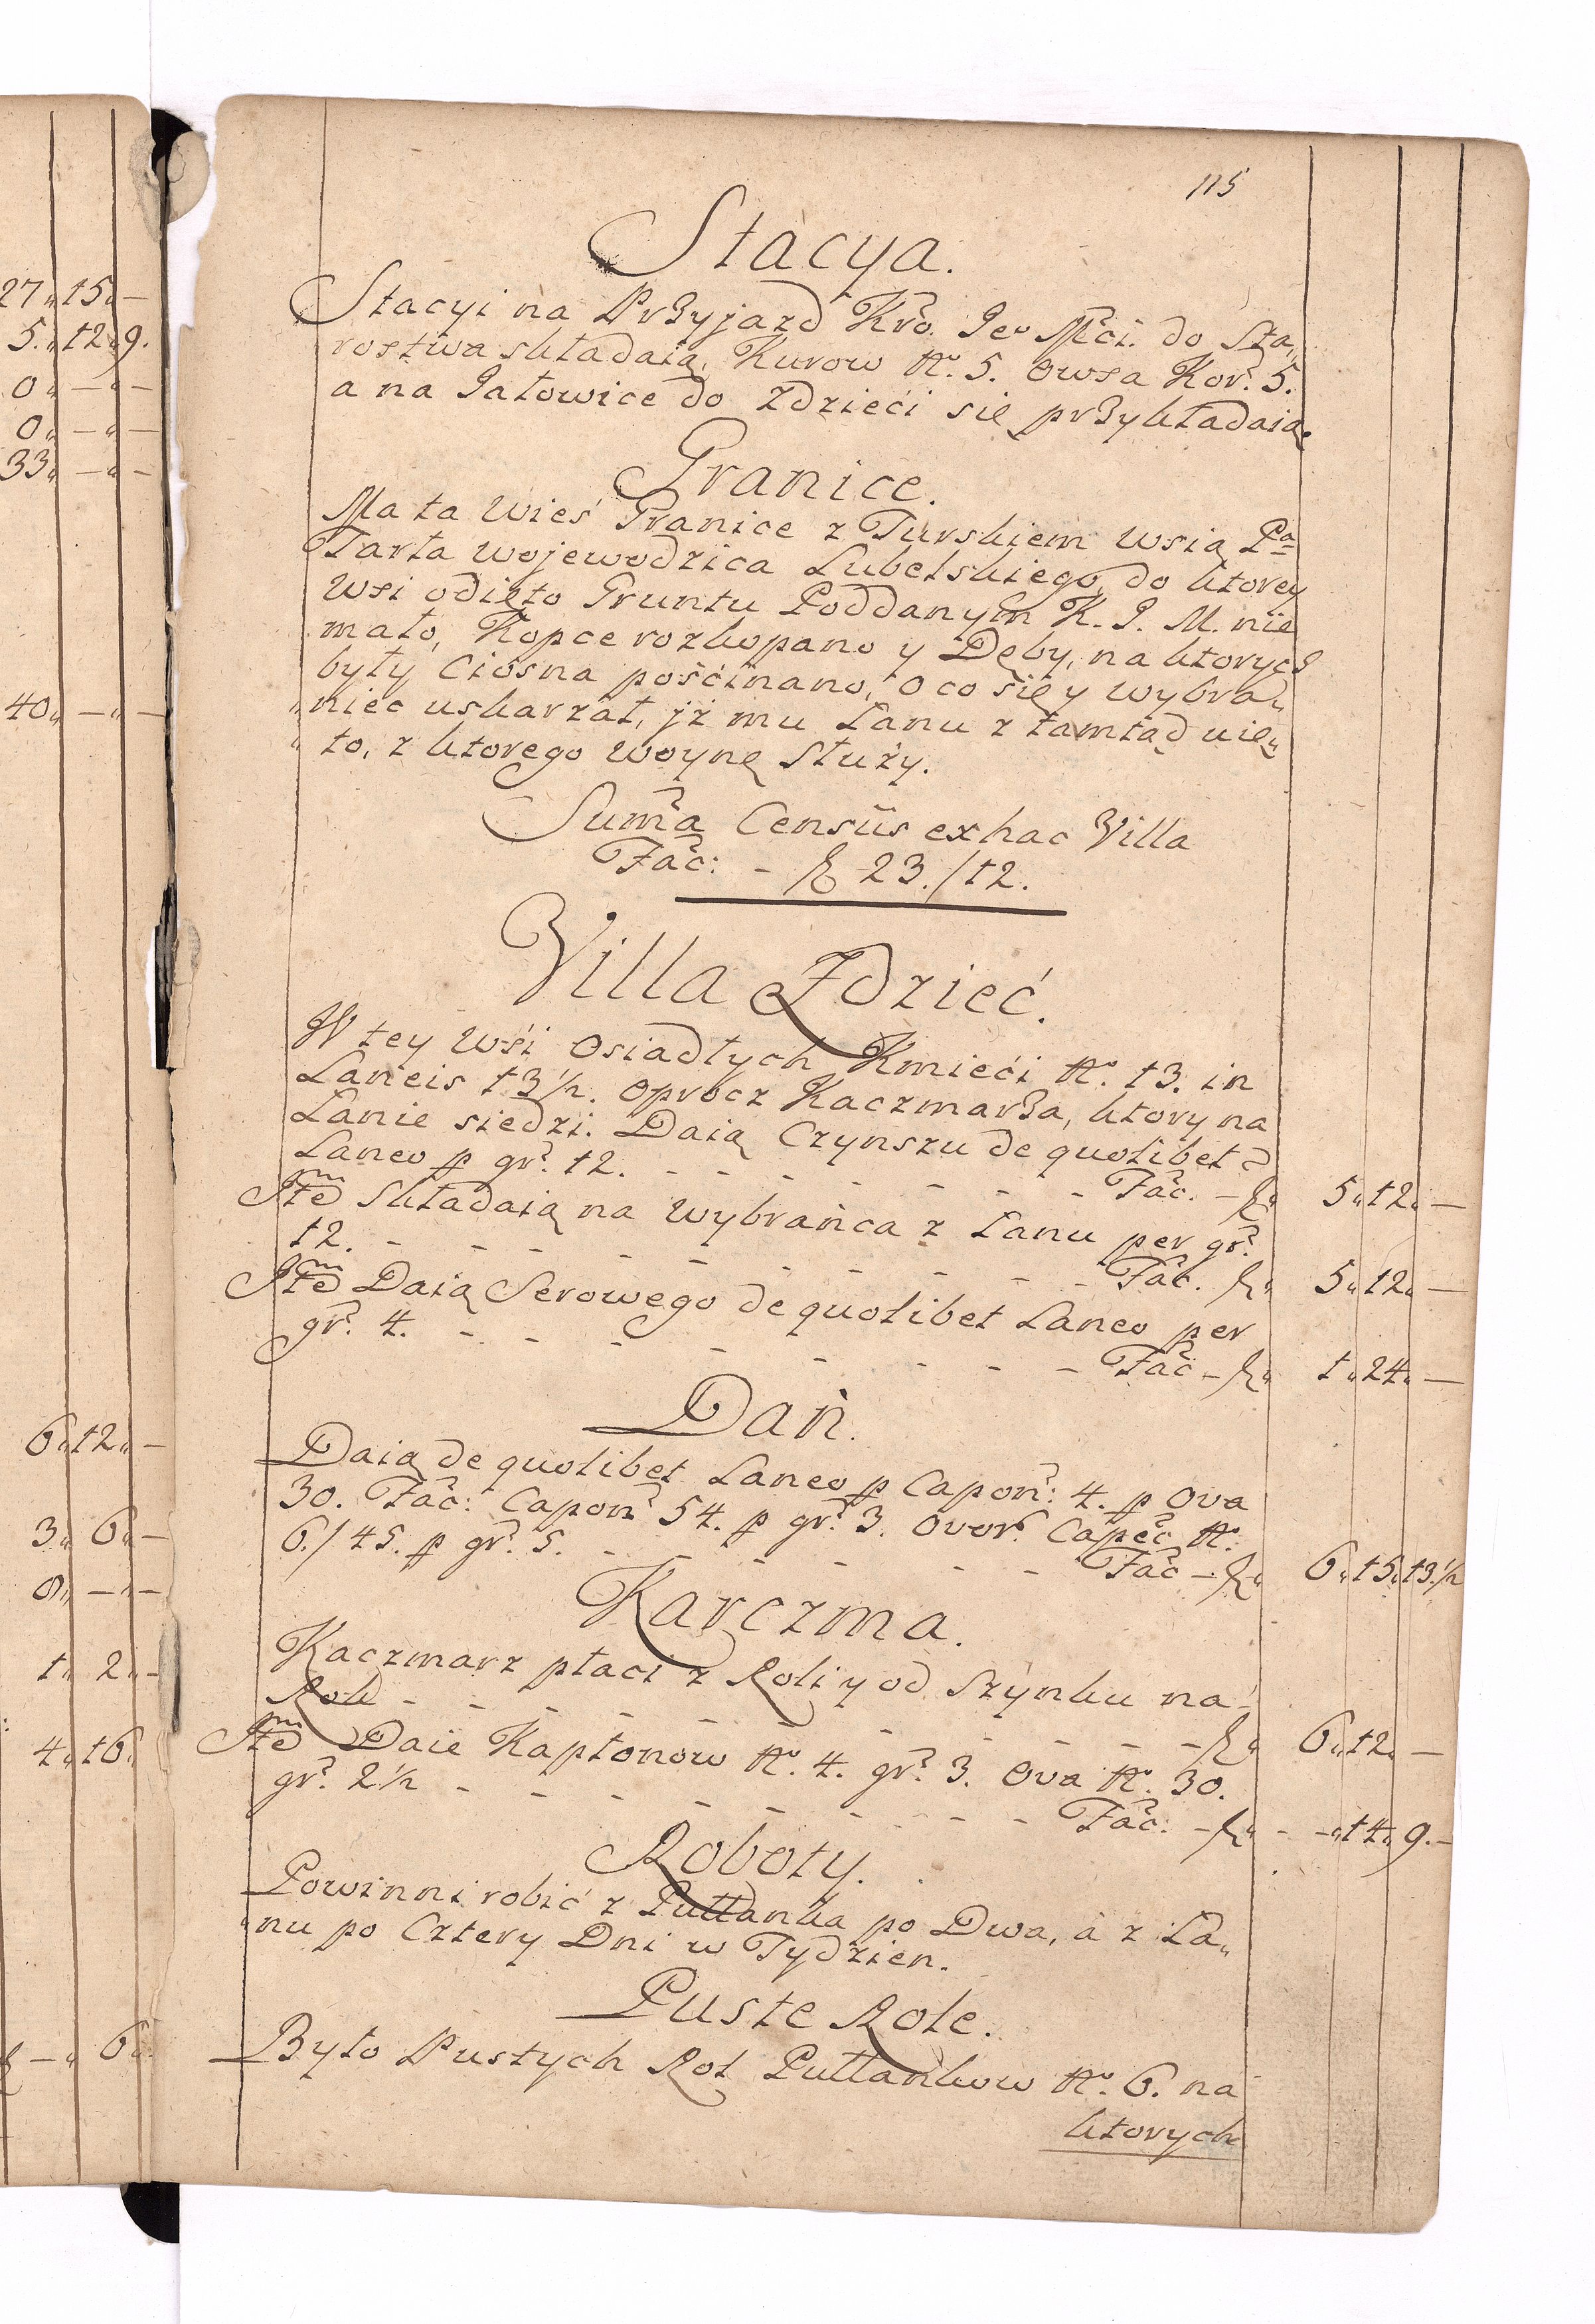 115
Stacya.
Stacyi na Przyjazd Kro. Jeo Mci. do Sta„
rostwa składaią, Kurow No. 5. Owsa Kor. 5.
a na Jałowice do Zdzieci się przykładaią.
Granice.
Ma ta Wieś Granice z Turskiem wsią Pa
Tarła wojewodzica Lubelskiego, do ktorey
wsi odięto Gruntu Poddanym K. J. M. nie
mało, Kopce rozkopano y Dęby, na ktorych
były Ciosna pościnano, o co się y wybra„
„niec uskarzał, jż mu Łanu z tamtąd uię„
„to, z ktorego woynę służy.
Suma Censûs ex hac Villa
Fac: - f 23./12.
Villa Zdzieć.
W tey Wśi Osiadłych Kmieći No. 13. in
Laneis 13 1/2. oprocz Kaczmarza, ktory na
Łanie siedzi. Daią Czynszu de quolibet
Laneo p gr. 12. - - - - - - - Fac. - f„ 5„ 12„ —
Ite Składaią na wybrańca z Łanu per gr.
12. - - - - - - - - - - Fac. f„ 5„ 12„ —
Ite Daią Serowego de quolibet Laneo per
gr. 4. - - - - - - - - Fac - f„ 1„ 24„ —
Dań.
Daią de quolibet Laneo p Capon: 4. p Ova
30. Fac: Capon 54. p gr. 3. Ovor. Capec No.
6./45. p gr. 5. - - - - - - Fac - f„ 6„ 15„ 13 1/2
Karczma.
Kaczmarz płaci z Roli y od Szynku na
Rok - - - - - - - - - f„ 6„ 12„ —
Ite Daie Kapłonow No. 4. gr. 3. Ova No. 30.
gr. 2 1/2 - - - - - - - - Fac: - f„ - -„ 14„ 9. -
Roboty.
Powinni robić z Pułłanka po Dwa, a z Ła„
„nu po Cztery Dni w Tydzien.
Puste Role.
Było Pustych Rol Pułłankow No. 6. na
ktorych
27„ 15„ —
5.„ 12„ 9.
0„ —„ —
0„ —„ —
33„ —„ —
40„ —„ —
6„ 12„ —
3„ 6„ —
0„ —„ —
1„ 2„ —
4„ 16„
—„ 6„